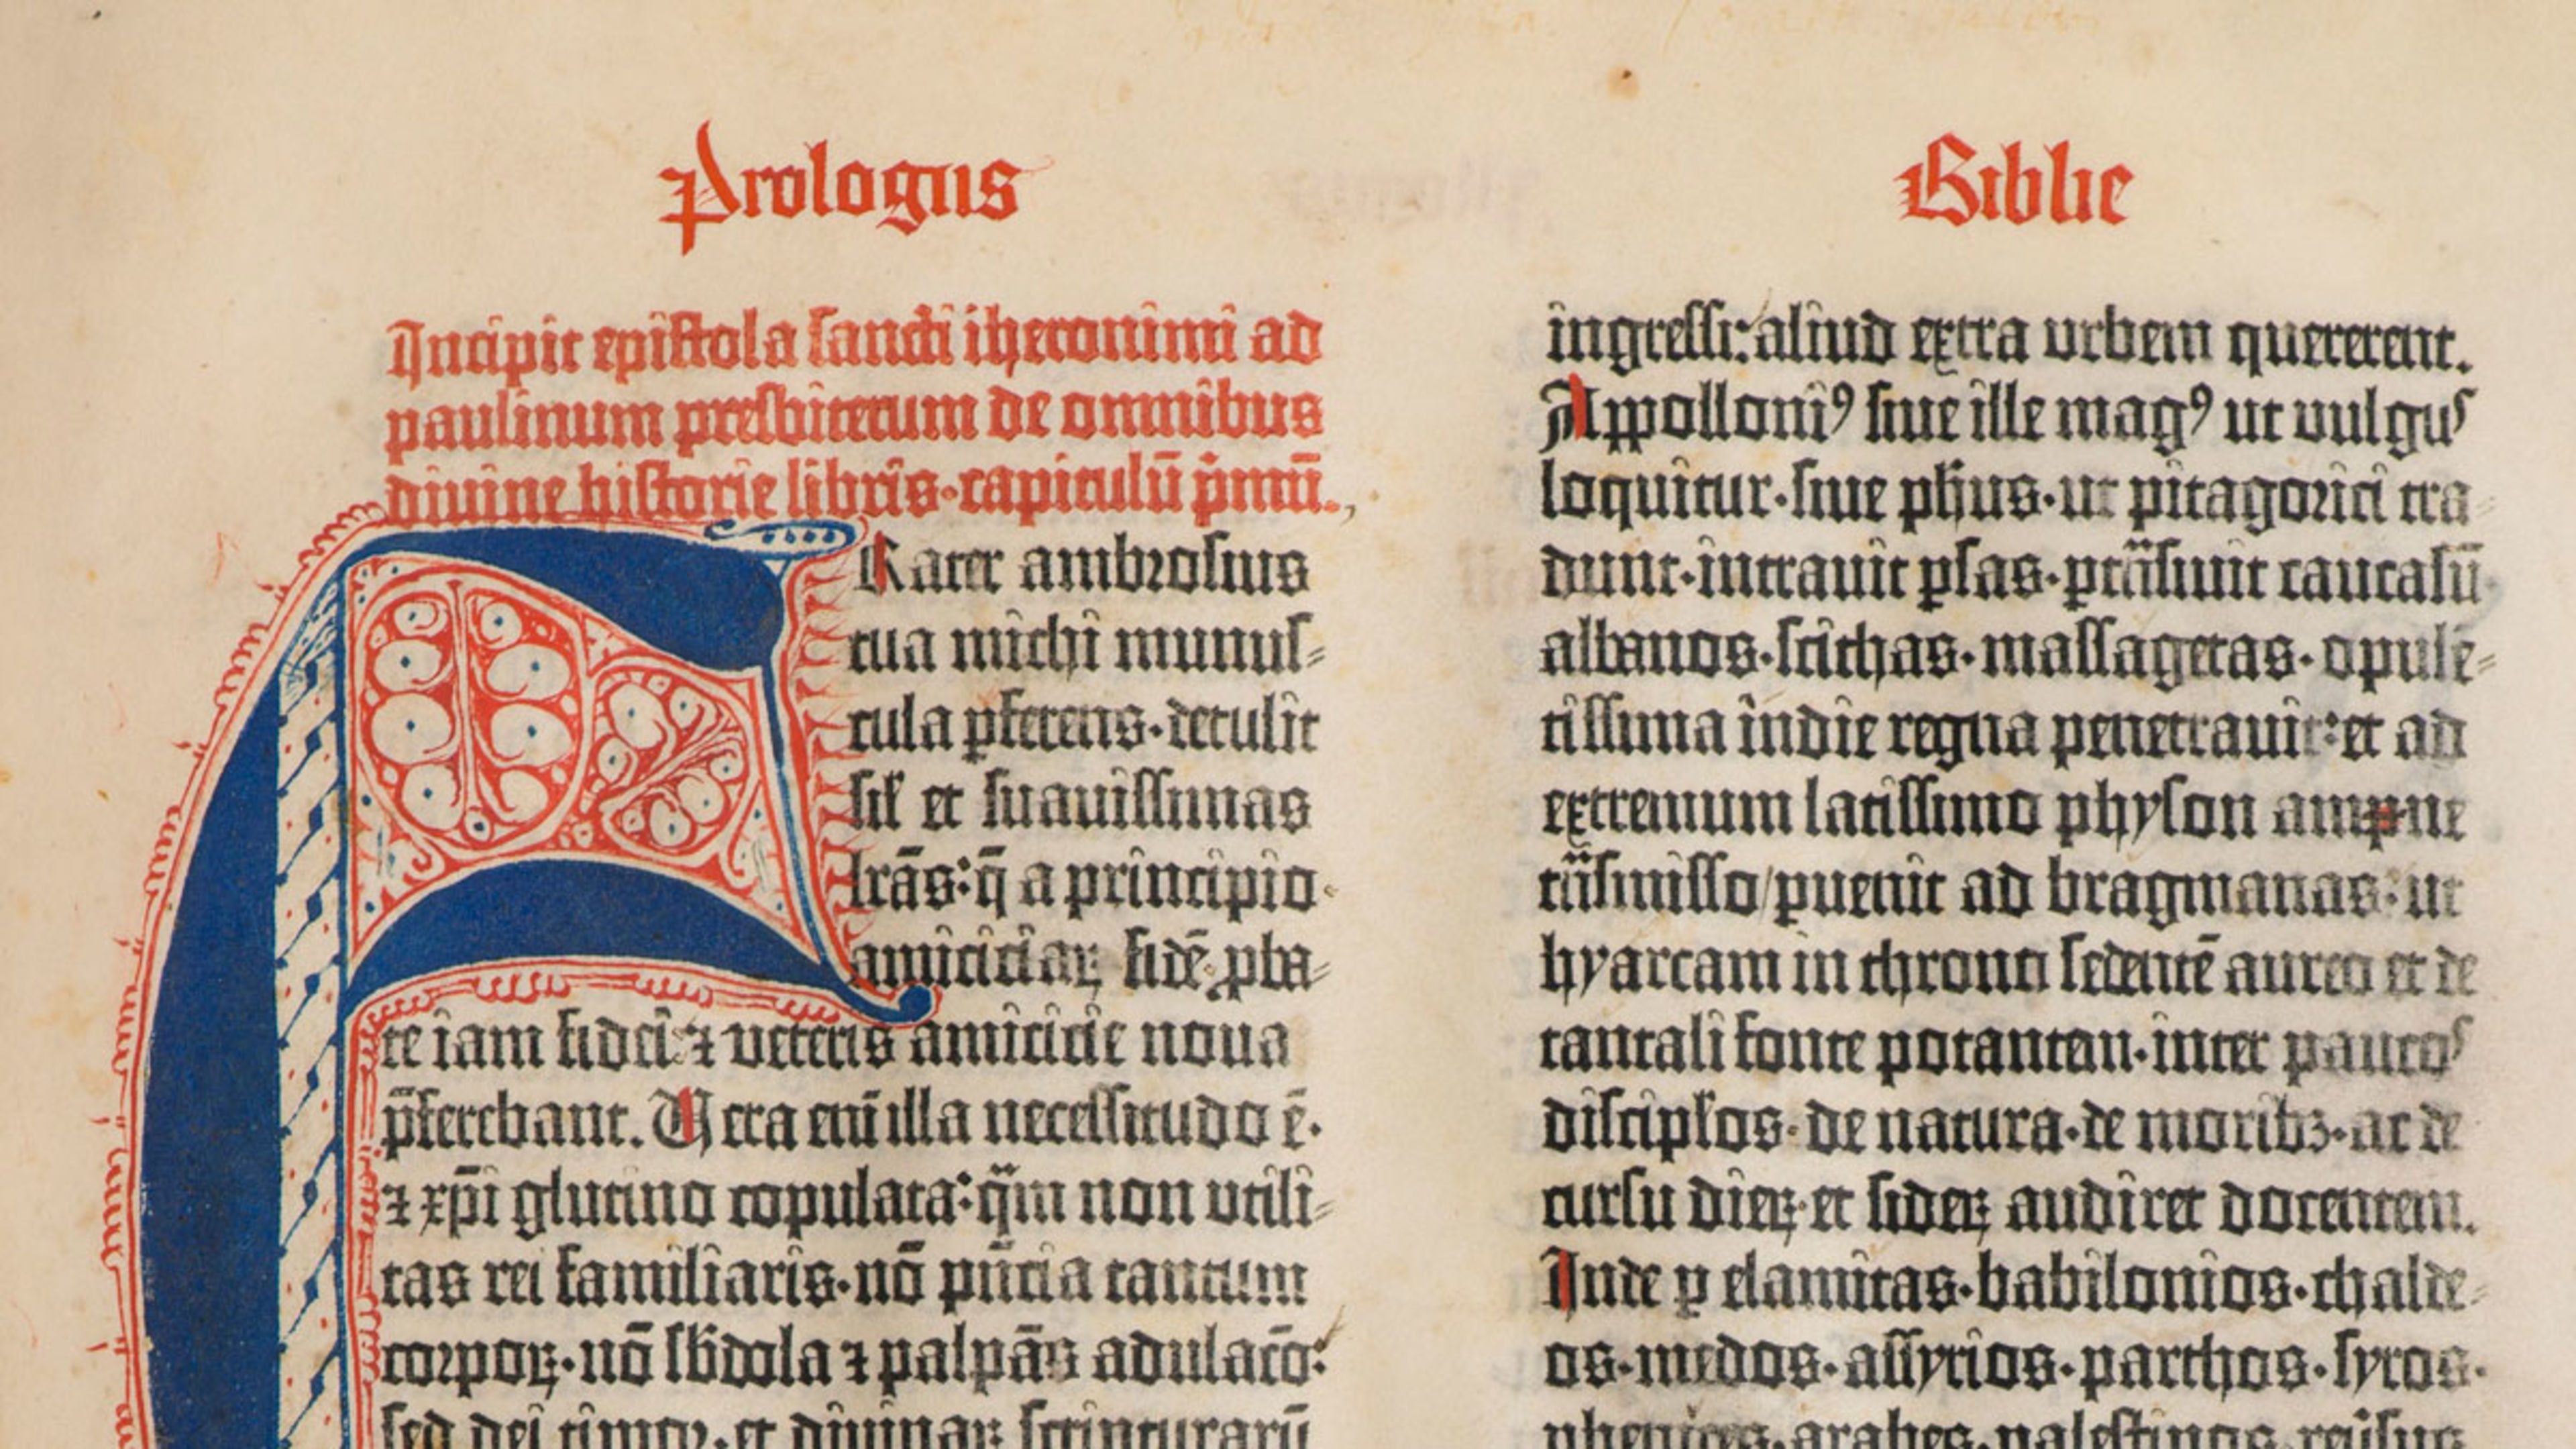 Prologus
Biblie
Incipit epistola sancti iheronimi ad
paulinum presbiterum de omnibus
divine historie libris·capitulū p̄mū.
FRater ambrosius
tua michi munus-
cula ꝑferens·detulit
sil' et suauissimas
lrās:q̄ a principio
amiciciaꝝ fidē ꝓba-
te iam fidei ⁊ veteris amicicie noua
p̄ferebant. Uera eni illa necessitudo ē·
⁊ xp̄i glutino copulata:qͣm non vtili-
tas rei familiaris·nō pn̄cia tantum
corpoꝝ·nō sb'dola ⁊ palpās adulacō:
sed dei timor·et diuinaꝝ scripturarū
ingressi:aliud extra vrbem quererent.
Appolloniꝰ siue ille magꝰ ut vulgus
loquitur·siue ph'us·ut pitagorici tra-
dunt·intrauit ꝑsas·ꝑtrāsiuit caucasū
albanos·scithas·massagetas·opulē-
tissima indie regna penetrauit:et ad
extremum latissimo physon ampne
trāsmisso/ꝑuenit ad bragmanas:ut
hyarcam in throno sedentē aureo et de
tantali fonte potantem·inter paucos
discipl'os·de natura·de moribꝫ·ac de
cursu dieꝝ et sideꝝ audiret docentem.
Inde ꝑ elamitas·babilonios·chalde-
os·medos·assyrios·parthos·syros·
phenices·arabes·palestinos·reūsus